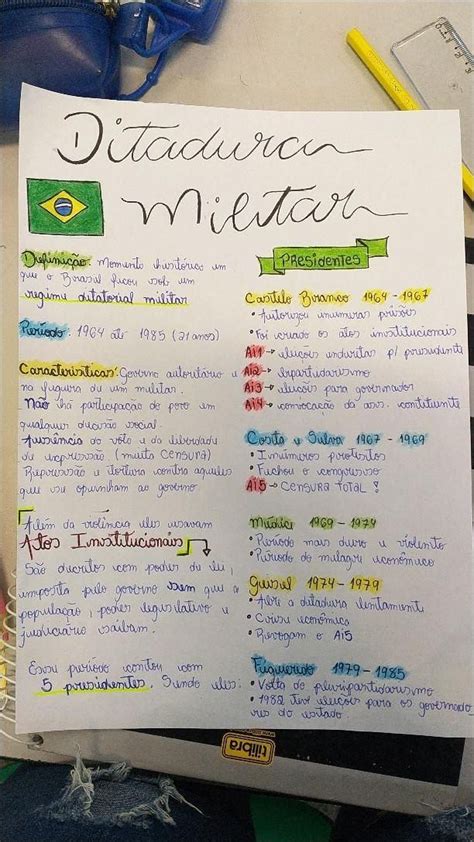 Ditadura
Militar
Definição: Momento histórico em
que o Brasil ficou sob um
regime ditatorial militar
Período: 1964 até 1985 (21 anos)
Características: Governo autoritário e
na figura de um militar.
Não há participação do povo em
qualquer decisão social.
Ausência do voto e da liberdade
de expressão (muita censura)
Repressão e tortura contra aqueles
que se opunham ao governo
Além da violência eles usavam
Atos Institucionais
São decretos com poder de lei,
imposta pelo governo sem que a
população, poder legislativo e
judiciário saibam.
Esse período contou com
5 presidentes. Sendo eles:
PRESIDENTES
Castelo Branco 1964 - 1967
• Autorizou inúmeras prisões
• Foi criado os atos institucionais
AI1 → eleições indiretas p/ presidente
AI2 → bipartidarismo
AI3 → eleições para governador
AI4 → convocação da ass. constituinte
Costa e Silva 1967 - 1969
• Inúmeros protestos
• Fechou o congresso
AI5 → CENSURA TOTAL!
Médici 1969 - 1974
• Período mais duro e violento
• Período do milagre econômico
Geisel 1974 - 1979
• Abri a ditadura lentamente
• Crise econômica
• Revogam o AI5
Figueiredo 1979 - 1985
• Volta do pluripartidarismo
• 1982 teve eleições para os governado
res do estado.
tilibra